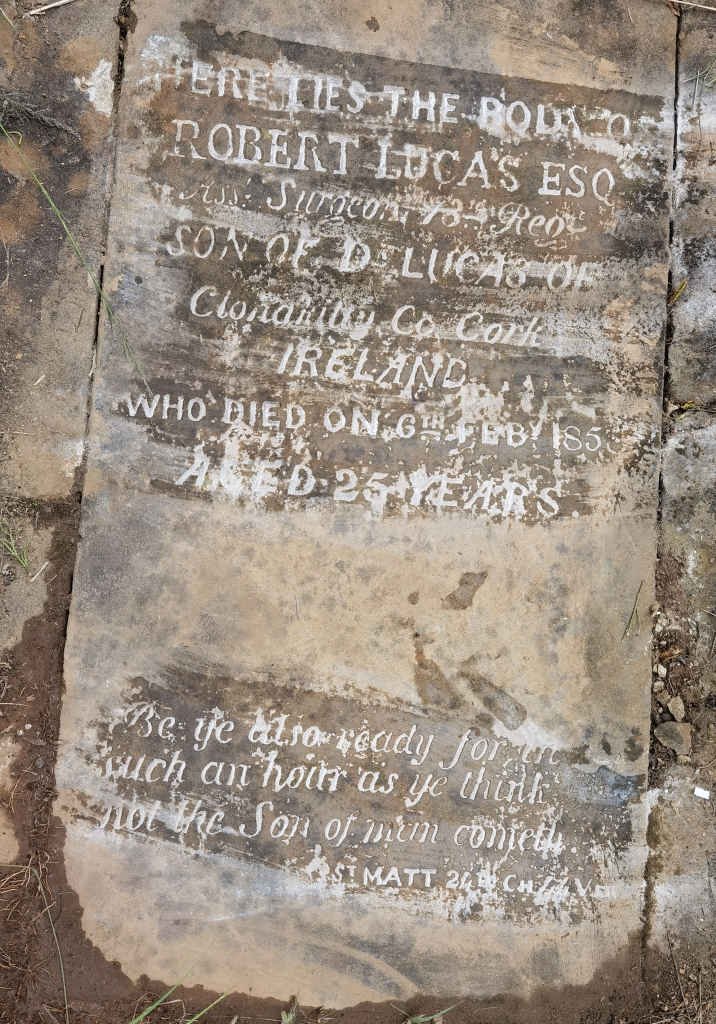 HERE LIES THE BODY O
ROBERT LUCAS ESQ
Asst Surgeon 73rd Regt
SON OF Dr LUCAS OF
Clonakilty Co Cork
IRELAND
WHO DIED ON 6TH FEBY 185
AGED 25 YEARS.
Be ye also ready for in
such an hour as ye think
not the Son of man cometh.
ST MATT 24TH CH 44 VER